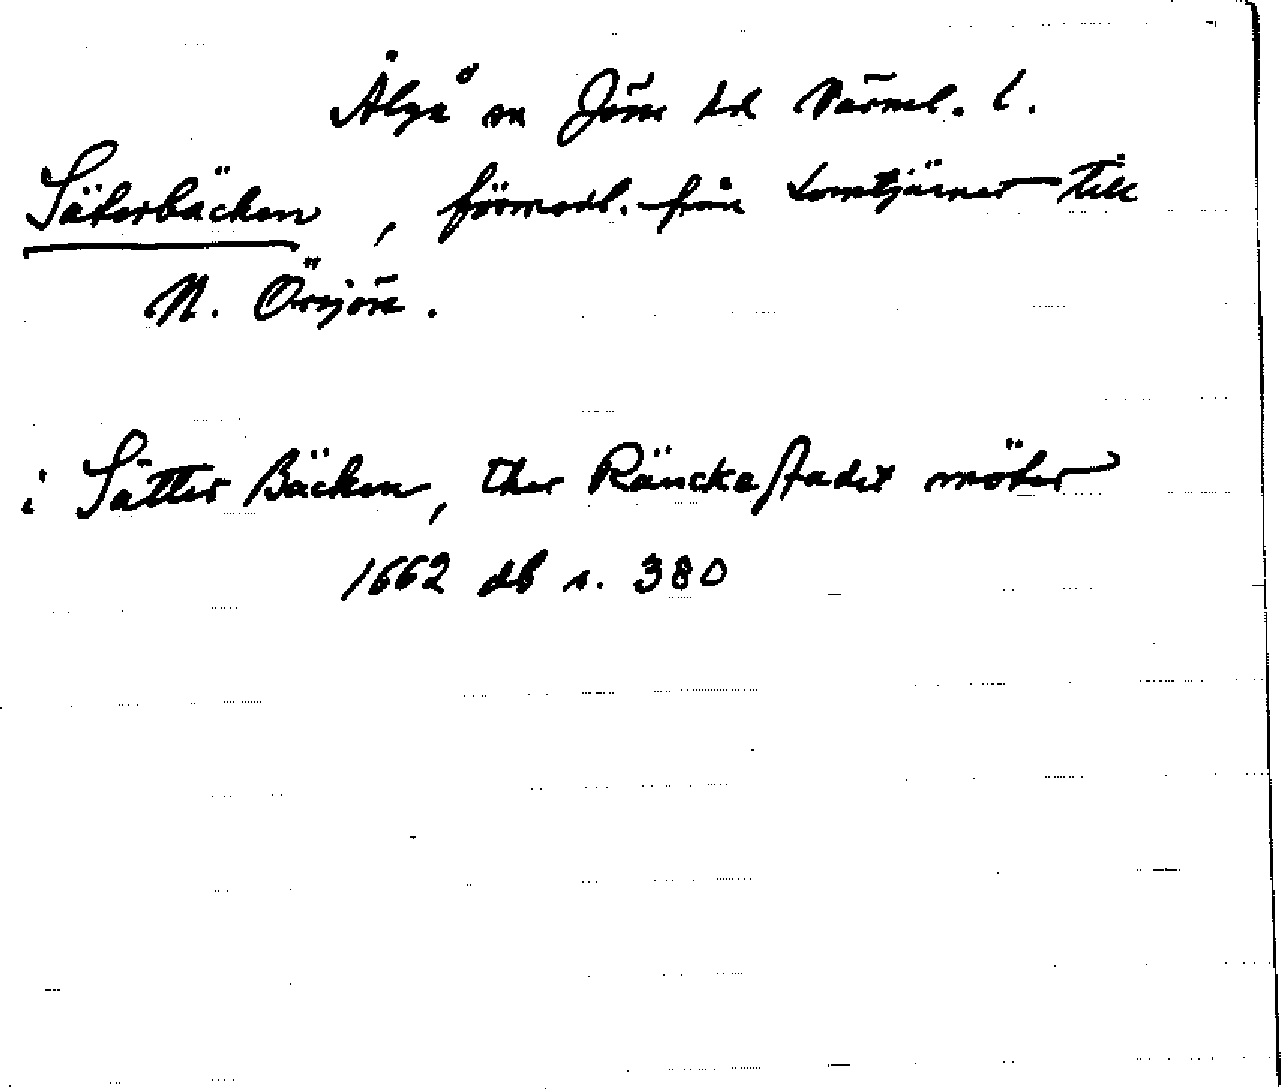 Älgå sn Jösse hd Värml. l.
Säterbäcken, förmodl. från Lomtjärnet till
N. Örsjön.
i Sätter Bäcken, ther Räncke stadet möter
1662 db s. 380